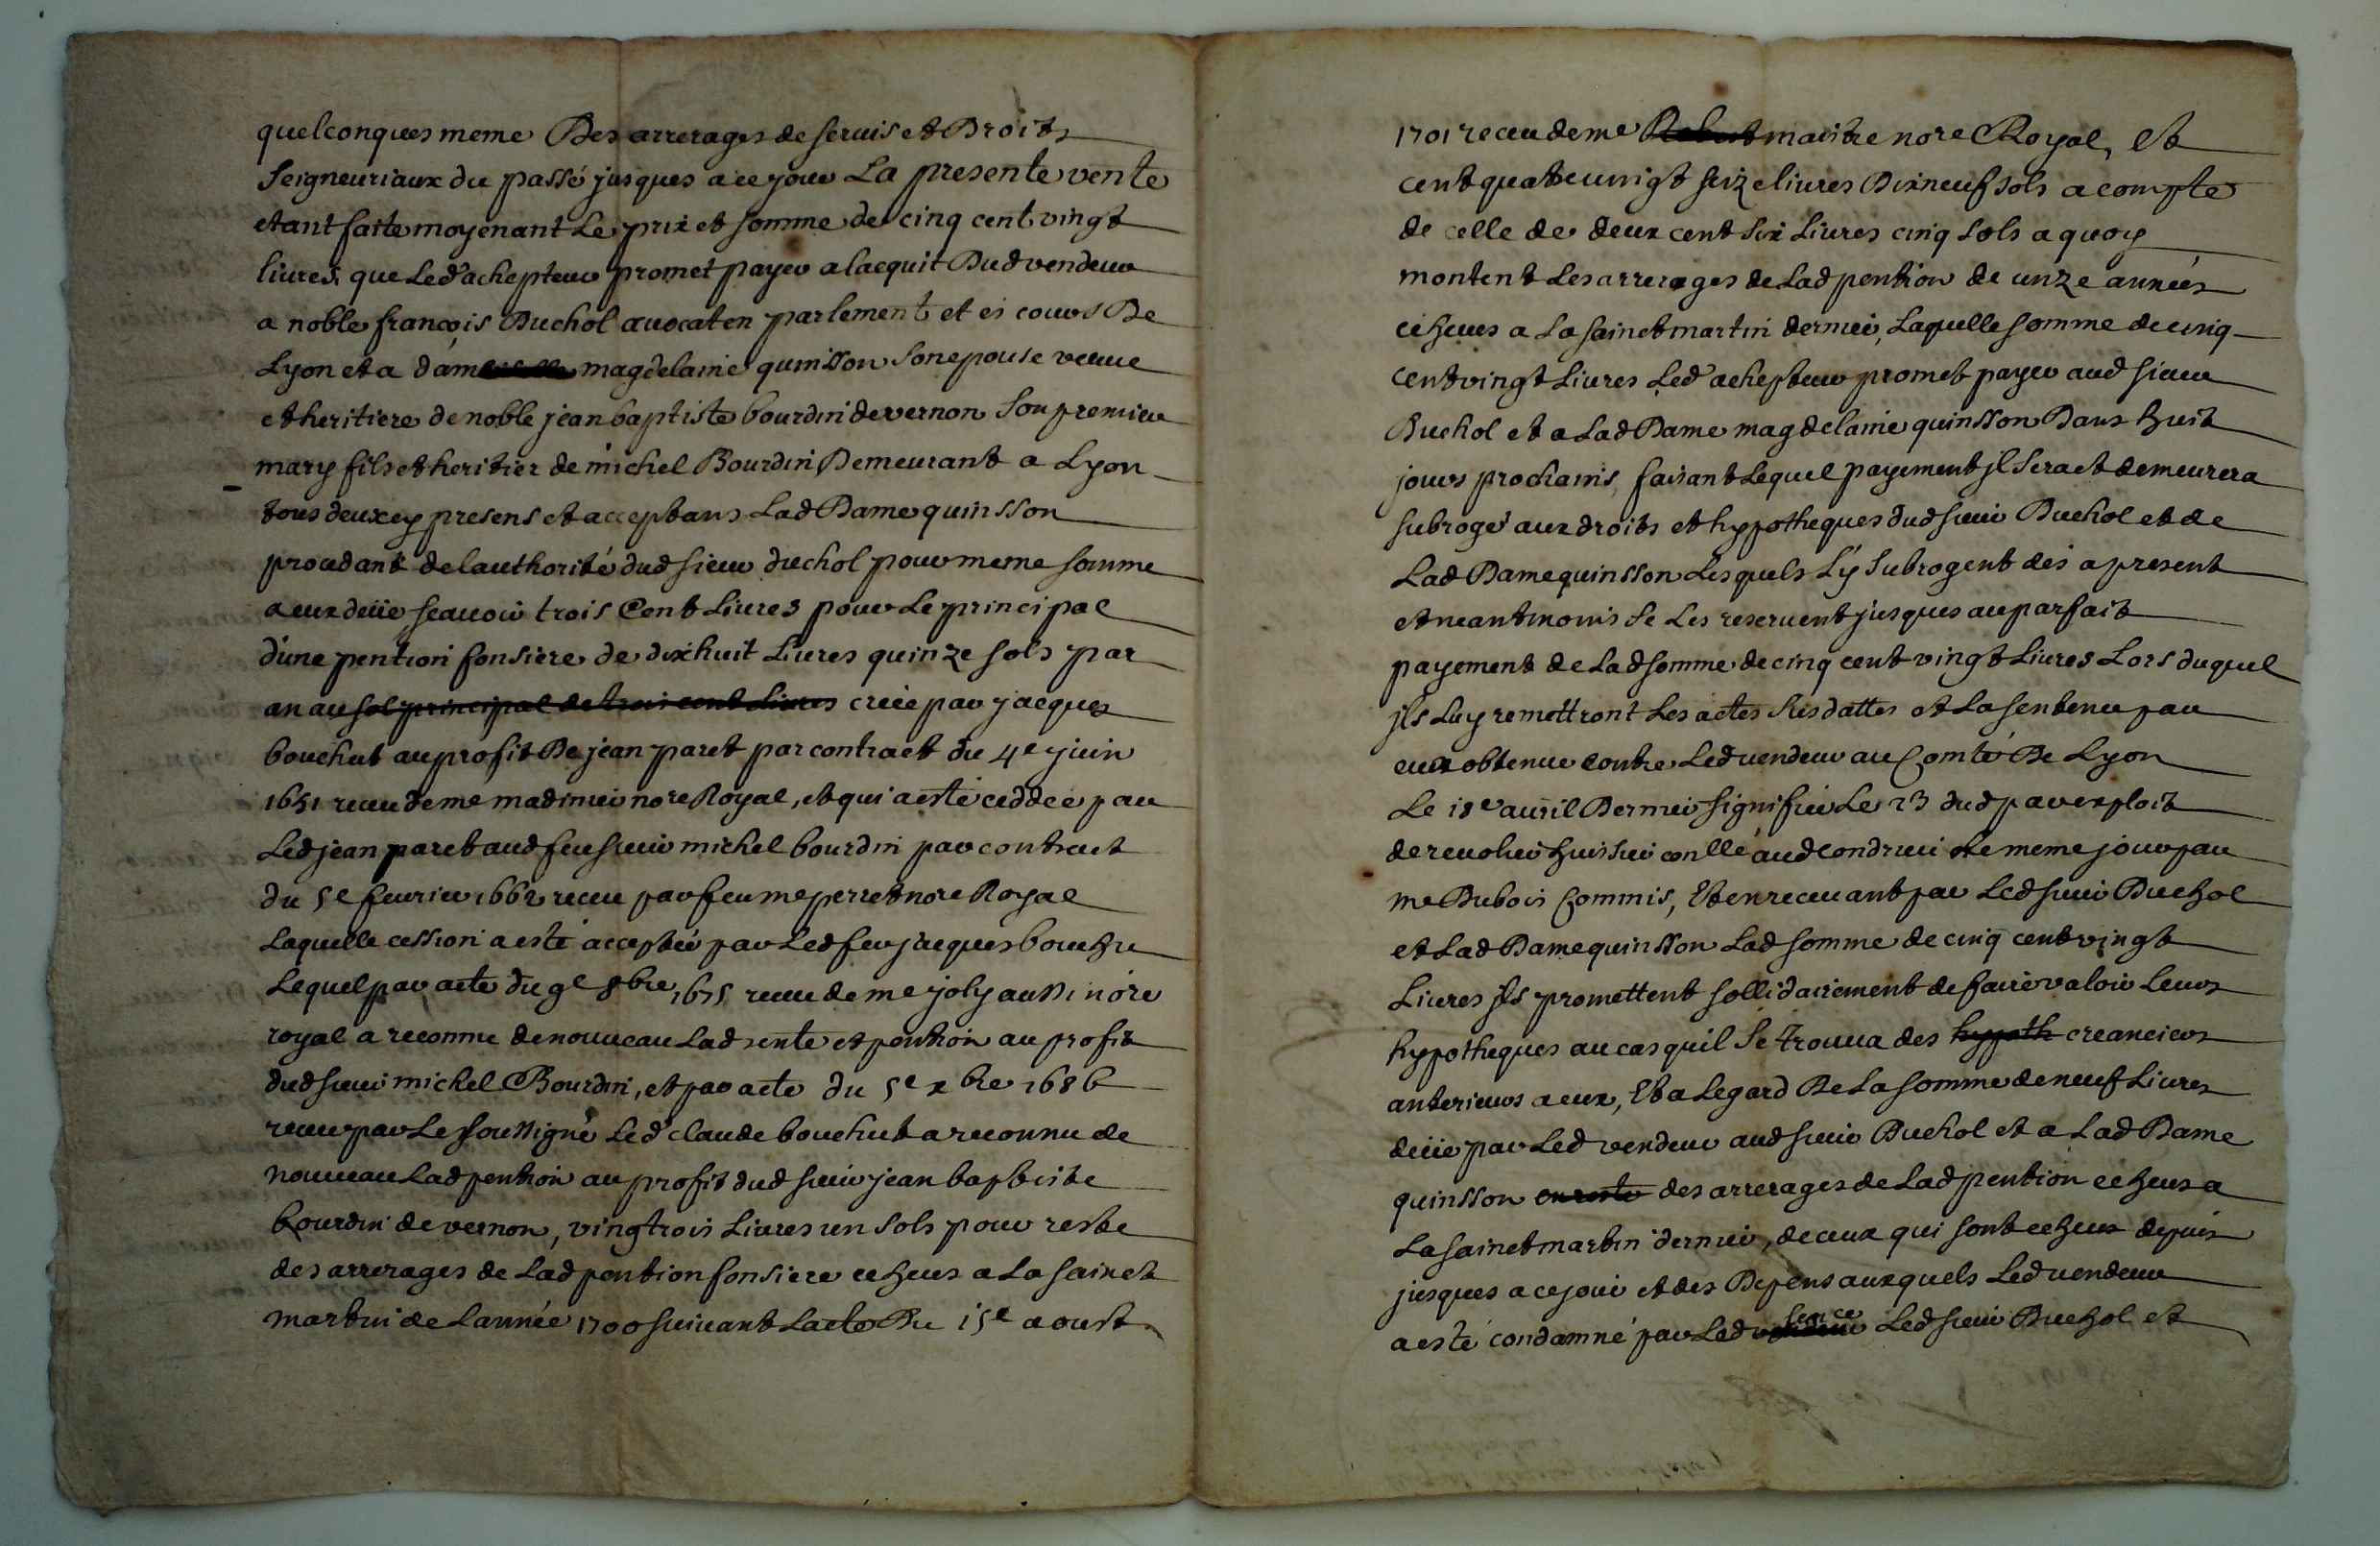 quelconques meme Des arrerages de servis et Droits
Seigneuriaux du passé jusques a ce jour La presente vente
etant faite moyenant Le prix et somme de cinq cent vingt
livres que Led achepteur promet payer a lacquit Dud vendeur
a noble françois Duchol avocat en parlement et es cours De
Lyon et a dam magdelaine quinsson son epouse veuve
et heritiere de noble jean baptiste bourdin de vernon Son premier
mary fils et heritier de michel Bourdin Demeurant a Lyon
tous deux cy presens et acceptans Lad Dame quinsson
procedant de lauthorité dud sieur duchol pour meme somme
a eux deüe scavoir trois Cent Livres pour Le principal
d'une pention fonsiere de dix huit Livres quinze sols par
an au sol principal de trois cent Livres creée par jacques
bouchut au profit De jean paret par contract du 4e juin
1651 receu de me madinier nore Royal, et qui a esté ceddée par
Led jean paret aud feu sieur michel bourdin par contract
du 5e feurier 1662 receu par feu me perret nore Royal
Laquelle cession a esté acceptée par Led feu jacques bouchu
Lequel par acte du 9e 8bre 1675 receu de me joly aussi nore
royal a reconnu de nouveau Lad rente et pention au profit
dud sieur michel Bourdin, et par acte du 5e xbre 1686
receu par Le soussigné Led claude bouchut a reconnu de
nouveau Lad pention au profit dud sieur jean baptiste
bourdin de vernon, vingtrois Livres un sols pour reste
des arrerages de Lad pention fonsiere echeus a La sainct
martin de Lannée 1700 suivant Lacte Du 15e aoust
1701 receu de me maitre nore Royal, et
cent quatre uingt seize livres Dixneuf sols a compte
de celle de deux cent six Livres cinq sols a quoy
montent Les arrerages de Lad pention de unze années
echeues a La sainct martin dernier, Laquelle somme de cinq
cent vingt Livres Led achepteur promet payer aud sieur
Duchol et a Lad Dame magdelaine quinsson Dans huit
jours prochains, faisant Lequel payement jl sera et demeurera
subrogé aux droits et hypotheques dud sieur Duchol et de
Lad Dame quinsson Lesquels L'y subrogent dés a present
et neantmoins se Les reservent jusques au parfait
payement de Lad somme de cinq cent vingt Livres Lors duquel
jls Luy remettront Les actes susdattes et La sentence par
eux obtenue contre Led vendeur au Comté De Lyon
Le 18e auril Dernier signifiée Le 23 dud par exploit
de revolier huissier conllé aud condrieu Le meme jour par
me Dubois Commis, Et en recevant par Led sieur Duchol
et Lad Dame quinsson Lad somme de cinq cent vingt
Livres jls promettent sollidairement de faire valoir Leurs
hypotheques au cas quil se trouva des hypoth creanciers
anterieurs a eux, Et a Legard De La somme de neuf Livres
deüe par Led vendeur aud sieur Duchol et a Lad Dame
quinsson en reste des arrerages de Lad pention echeus a
La sainct martin dernier, de ceux qui sont echeus depuis
jusques a ce jour et des Depens auxquels Led vendeur
a esté condamné par Lad vendeur sence Led sieur Duchol et